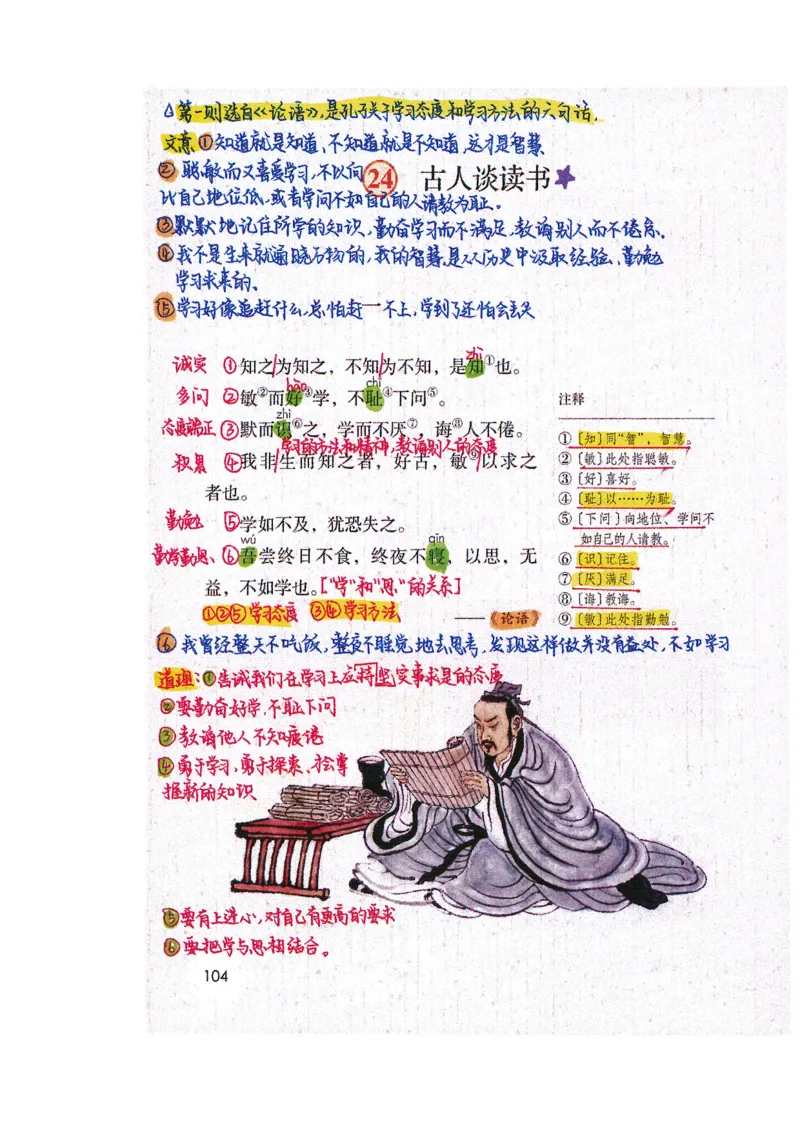 △第一则选自《论语》,是孔子关于学习态度和学习方法的六句话.
文意①知道就是知道、不知道就是不知道,这才是智慧
②聪敏而又喜爱学习,不以向
24 古人谈读书
比自己地位低,或者学问不如自己的人请教为耻。
③默默地记住所学的知识、勤奋学习而不满足,教诲别人而不倦怠.
④我不是生来就通晓万物的,我的智慧是从历史中汲取经验、勤勉
学习求来的、
⑤学习好像追赶什么,总怕赶一不上,学到了还怕会丢失
诚实 ①知之/为知之,不知/为不知,是知①也。
zhì
多问 ②敏②而好③学,不耻④下问⑤。
hào chǐ
态度端正 ③默而识⑥之,学而不厌⑦,诲⑧人不倦。
zhì
学习的方法和精神,教诲别人的态度
积累 ④我非/生而知之者,好古,敏⑨/以求之
者也。
勤勉 ⑤学如不及,犹恐失之。
wú qǐn
勤学勤思、⑥吾尝终日不食,终夜不寝,以思,无
益,不如学也。["学"和"思"的关系]
①②⑤学习态度 ③④学习方法
——《论语》
注释
①〔知〕同“智”,智慧。
②〔敏〕此处指聪敏。
③〔好〕喜好。
④〔耻〕以……为耻。
⑤〔下问〕向地位、学问不
如自己的人请教。
⑥〔识〕记住。
⑦〔厌〕满足。
⑧〔诲〕教诲。
⑨〔敏〕此处指勤勉。
⑥我曾经整天不吃饭,整夜不睡觉地去思考,发现这样做并没有益处,不如学习
道理:①告诫我们在学习上应持坚实事求是的态度
②要勤奋好学,不耻下问
③教诲他人不知疲倦
④勇于学习,勇于探索、
握新的知识
⑤要有上进心,对自己有更高的要求
⑥要把学与思相结合。
104